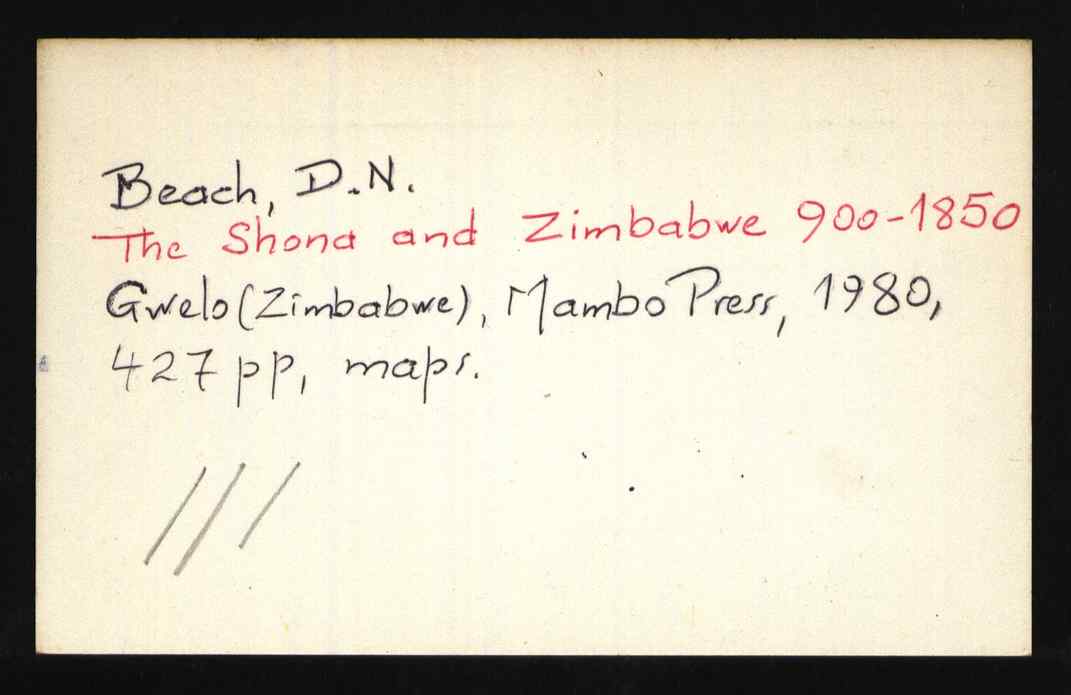 Beach, D.N.
The Shona and Zimbabwe 900-1850
Gwelo (Zimbabwe), Mambo Press, 1980,
427 pp, maps.